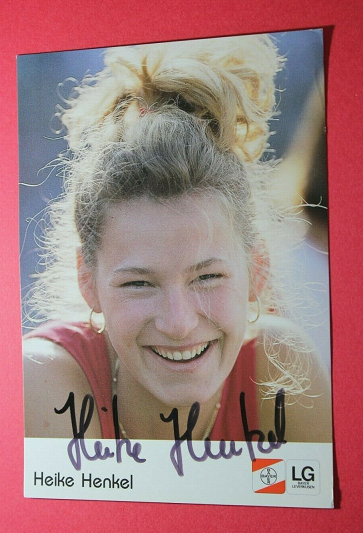 Heike Henkel
Heike Henkel
BAYER
LG
BAYER
LEVERKUSEN